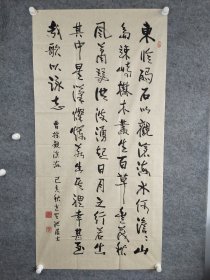 東臨碣石以觀滄海水何澹澹山
島竦峙樹木叢生百草豐茂秋
風蕭瑟洪波湧起日月之行若出
其中星漢燦爛若出其裡幸甚至
哉歌以詠志
曹操觀滄海 己亥秋